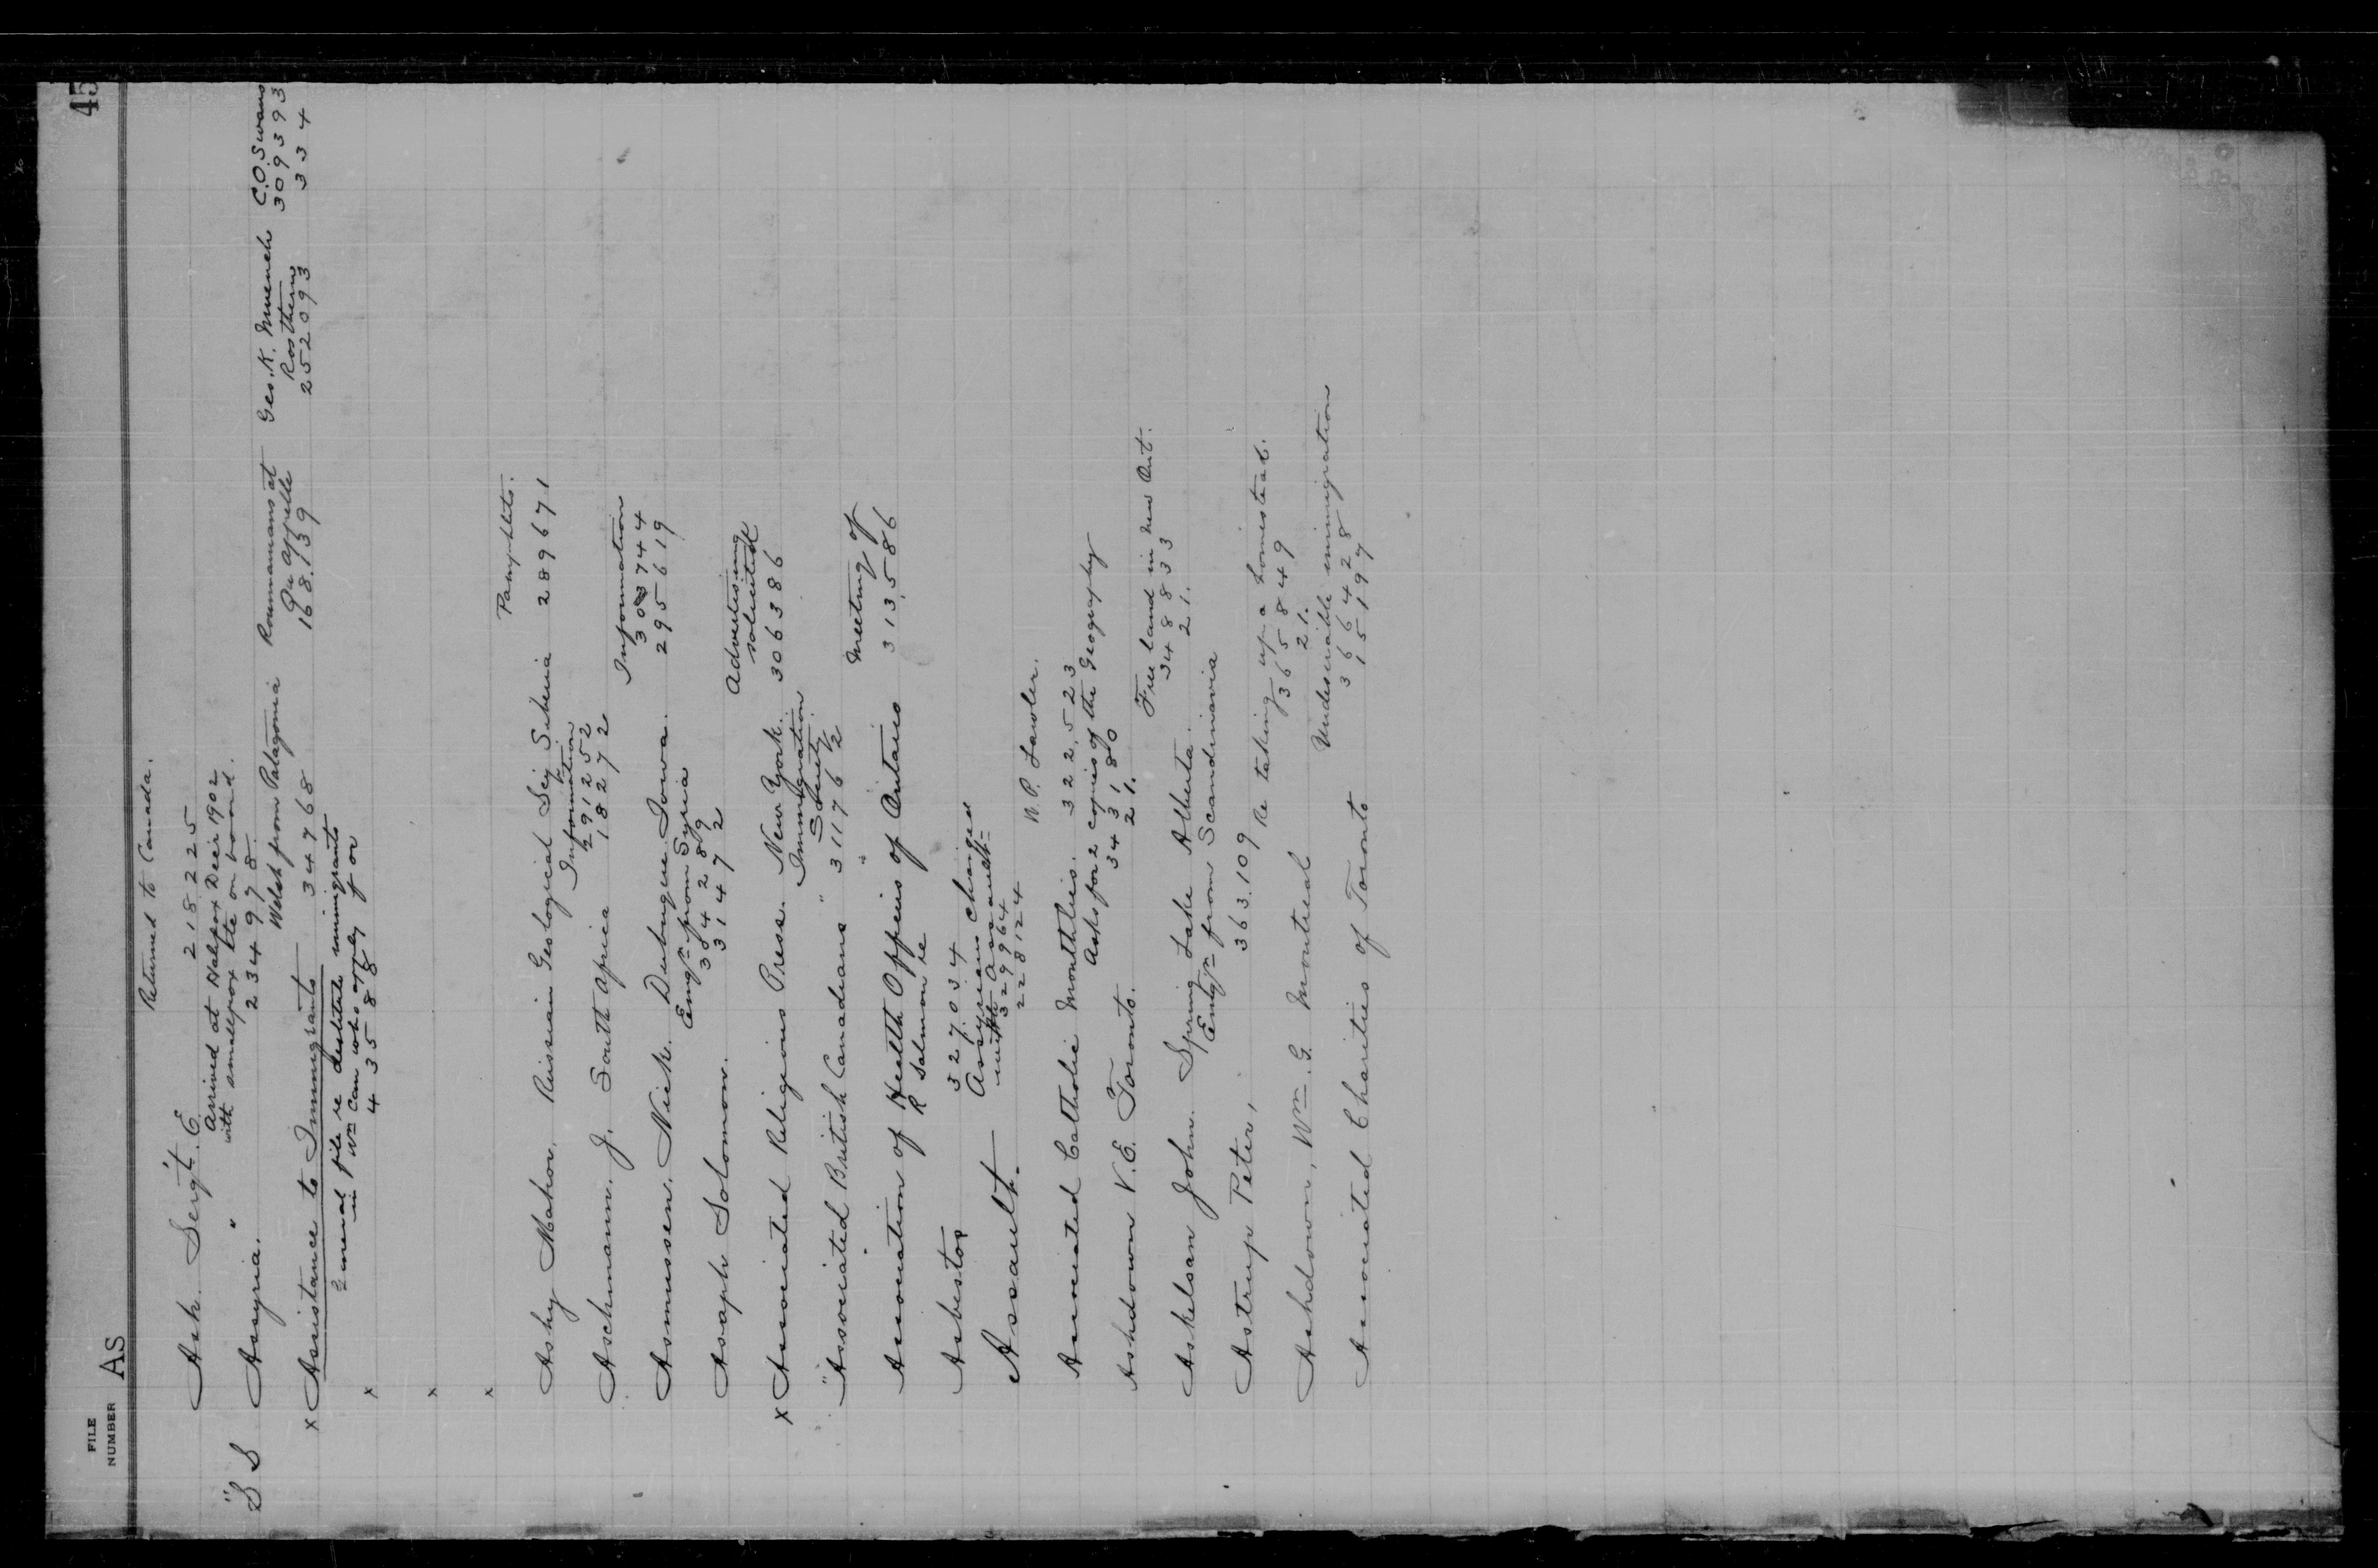 45
FILE
NUMBER AS
Returned to Canada.
Ash. Sergt. E. 218225
Arrived at Halifax Decr 1902
with smallpox etc on board.
"SS Assyria." 234978
Welsh from Patagonia Roumanians at Geo. K. Muench C.O. Swans
Qu Appelle Rosthern 309393
x Assistance to Immigrants 34768 168.159 252093 334
General file re destitute immigrants
in Wn Can who apply for
43588
x
x
x
Pamphlets.
Ashy Mahov, Russian Geological Siberia 289671
Information
291252
Aschmann, J. South Africa 18272
Information
303744
Asmussen, Nick. Dubuque Iowa. 295619
Emgn from Syria
394289
Asaph Solomon. 31472
Advertising
solicited
x Associated Religious Press. New York. 306386
Immigration
Society
"Associated British Canadians" 311762
Meeting of
Association of Health Officers of Ontario 313,586
R Salmon re
Asbestos 327.034
Assyrians charged
with Assault
329964
Assault. 228124
W.P. Lawler.
Associated Catholic Monthlies. 322,523
Asks for 2 copies of the Geography
343180
Ashdown V.E. Toronto. 21.
Free land in New Ont.
348833
Askelsan John. Spring Lake Alberta. 21.
Emgn from Scandinavia
Astrup Peter, 363.109
Re taking up a homestead.
365849
Ashdown, Wm. G. Montreal 21.
Undesirable immigration
366428
Associated Charities of Toronto 15197